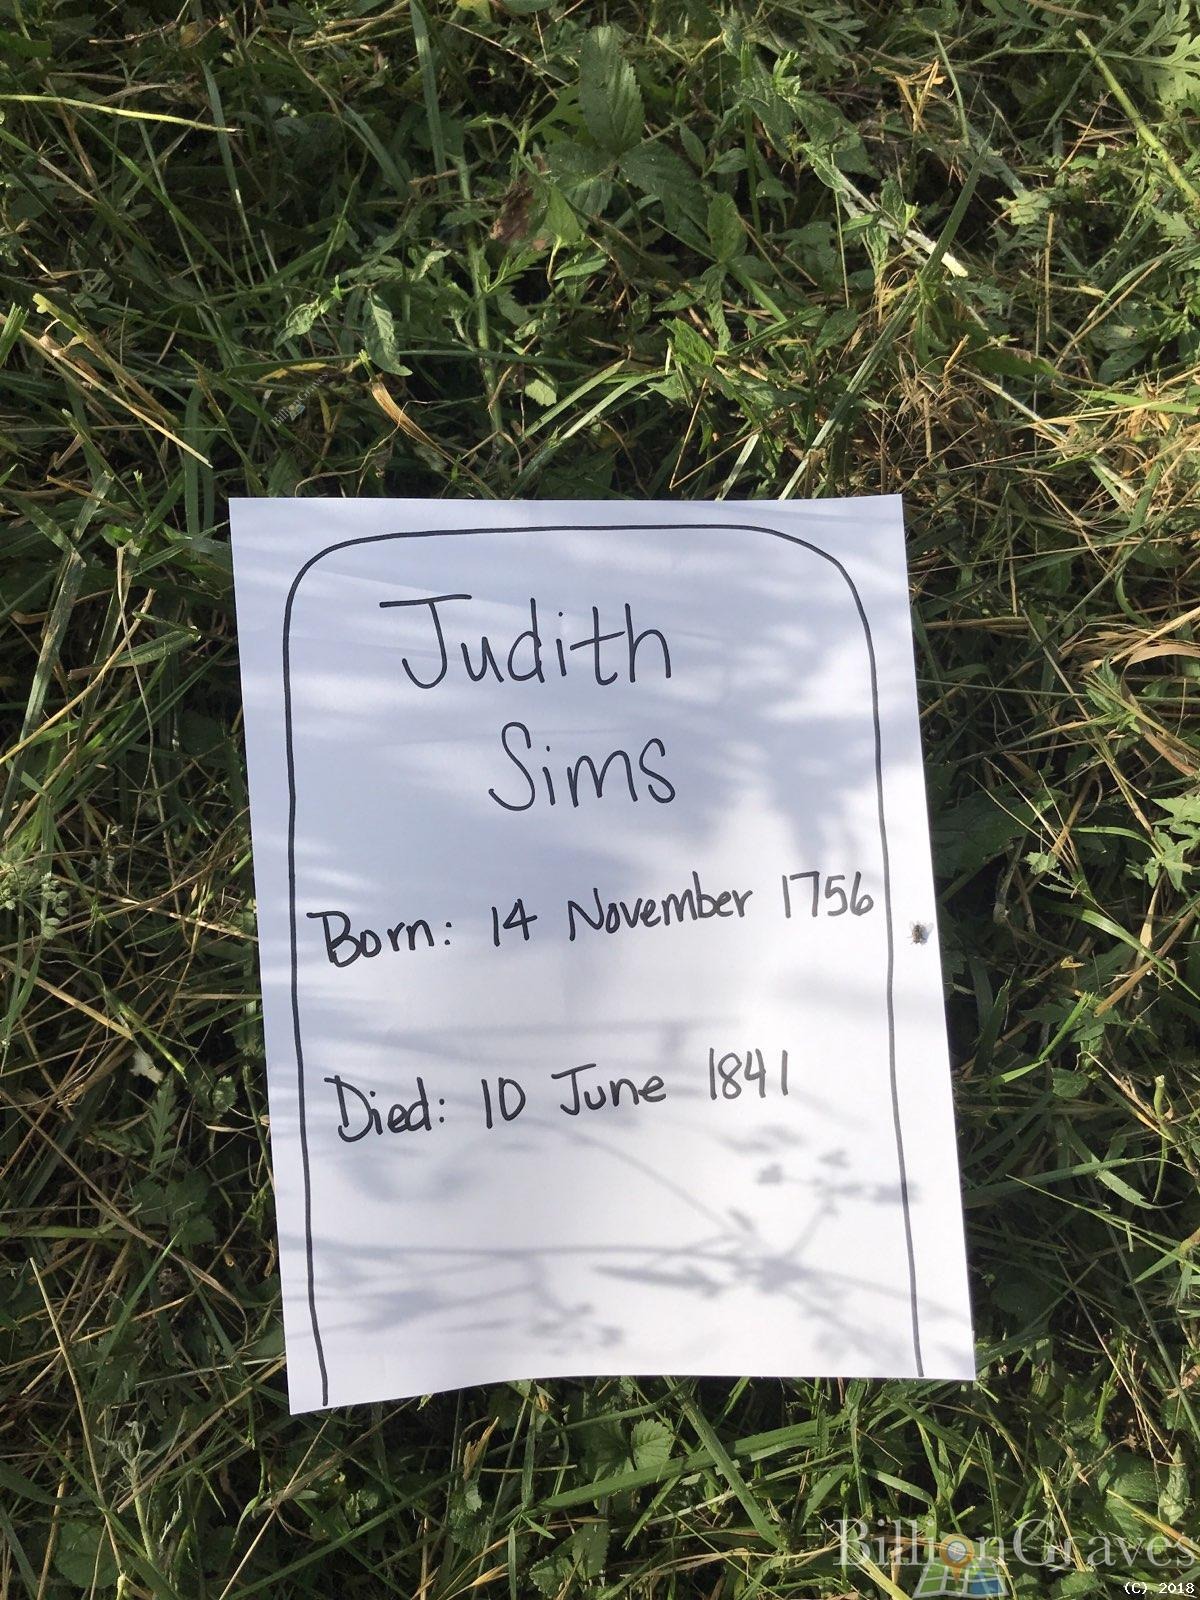 Judith
Sims
Born: 14 November 1756
Died: 10 June 1841
BillionGraves
(C) 2018